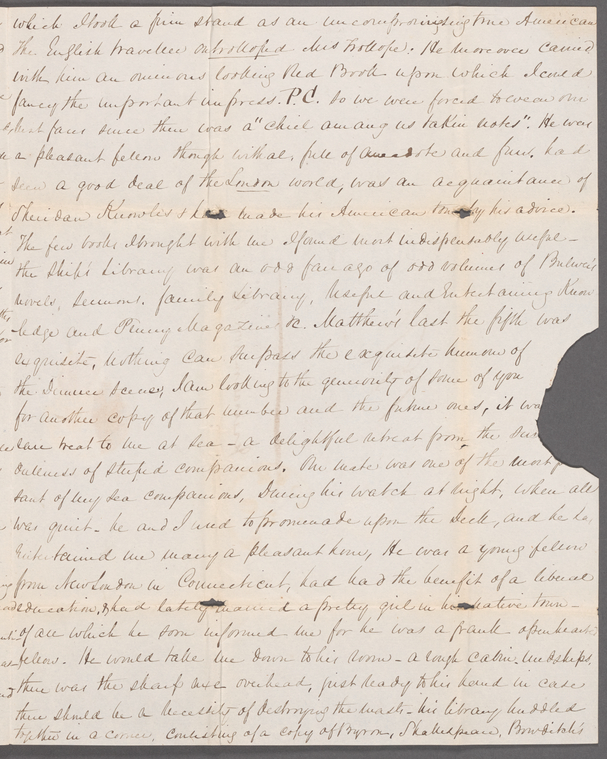 which I took a firm stand as an uncompromizing true American
the English traveller outtrolloped Mrs Trollope. He moreover carried
with him an ominous looking Red Book upon which I could
fancy the important impress. P.C. so we were forced to wear our
best faces since there was a "chiel amang us takin notes". He was
a pleasant fellow though withal, full of anecdote and fun. had
seen a good deal of the London world, was an acquaintance of
Sheridan Knowles's & made his American tour by his advice.
The few books I brought with me I found most indispensably useful -
the Ship's Library was an odd farago of odd volumes of Bulwer's
novels, Sermons. family Library, Useful and Entertaining Know
ledge and Penny Magazines &c. Matthew's last the fifth was
exquisite, nothing can surpass the exquisite humour of
the Dinner scene, I am looking to the generosity of some of you
for another copy of that number and the future ones, it
rare treat to me at sea - a delightful retreat from the
dulness of stupid companions. The mate was one of the most
sant of my sea companions, During his watch at night, when all
was quiet - he and I used to promenade upon the Deck, and he has
Entertained me many a pleasant hour, He was a young fellow
from New London in Connecticut, had had the benefit of a liberal
education, & had lately married a pretty girl in his native town -
of all which he soon informed me for he was a frank openhearted
fellow. He would take me down to his room - a rough cabin midships,
there was the sharp axe overhead, just ready to his hand in case
there should be a necessity of destroying the masts - his library huddled
together in a corner, consisting of a copy of Byron, Shakespeare, Bowditch's